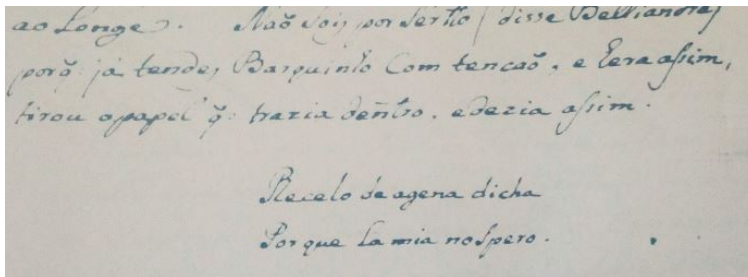 ao Longe. Não Sois por Serto (disse Belliandra)
porq̃ já tendes Barquinho Com tenção, e Lera assim,
tirou opapel q̃ trazia dentro, edezia assim.
Recelo de agena dicha
Porque La mia nospero.